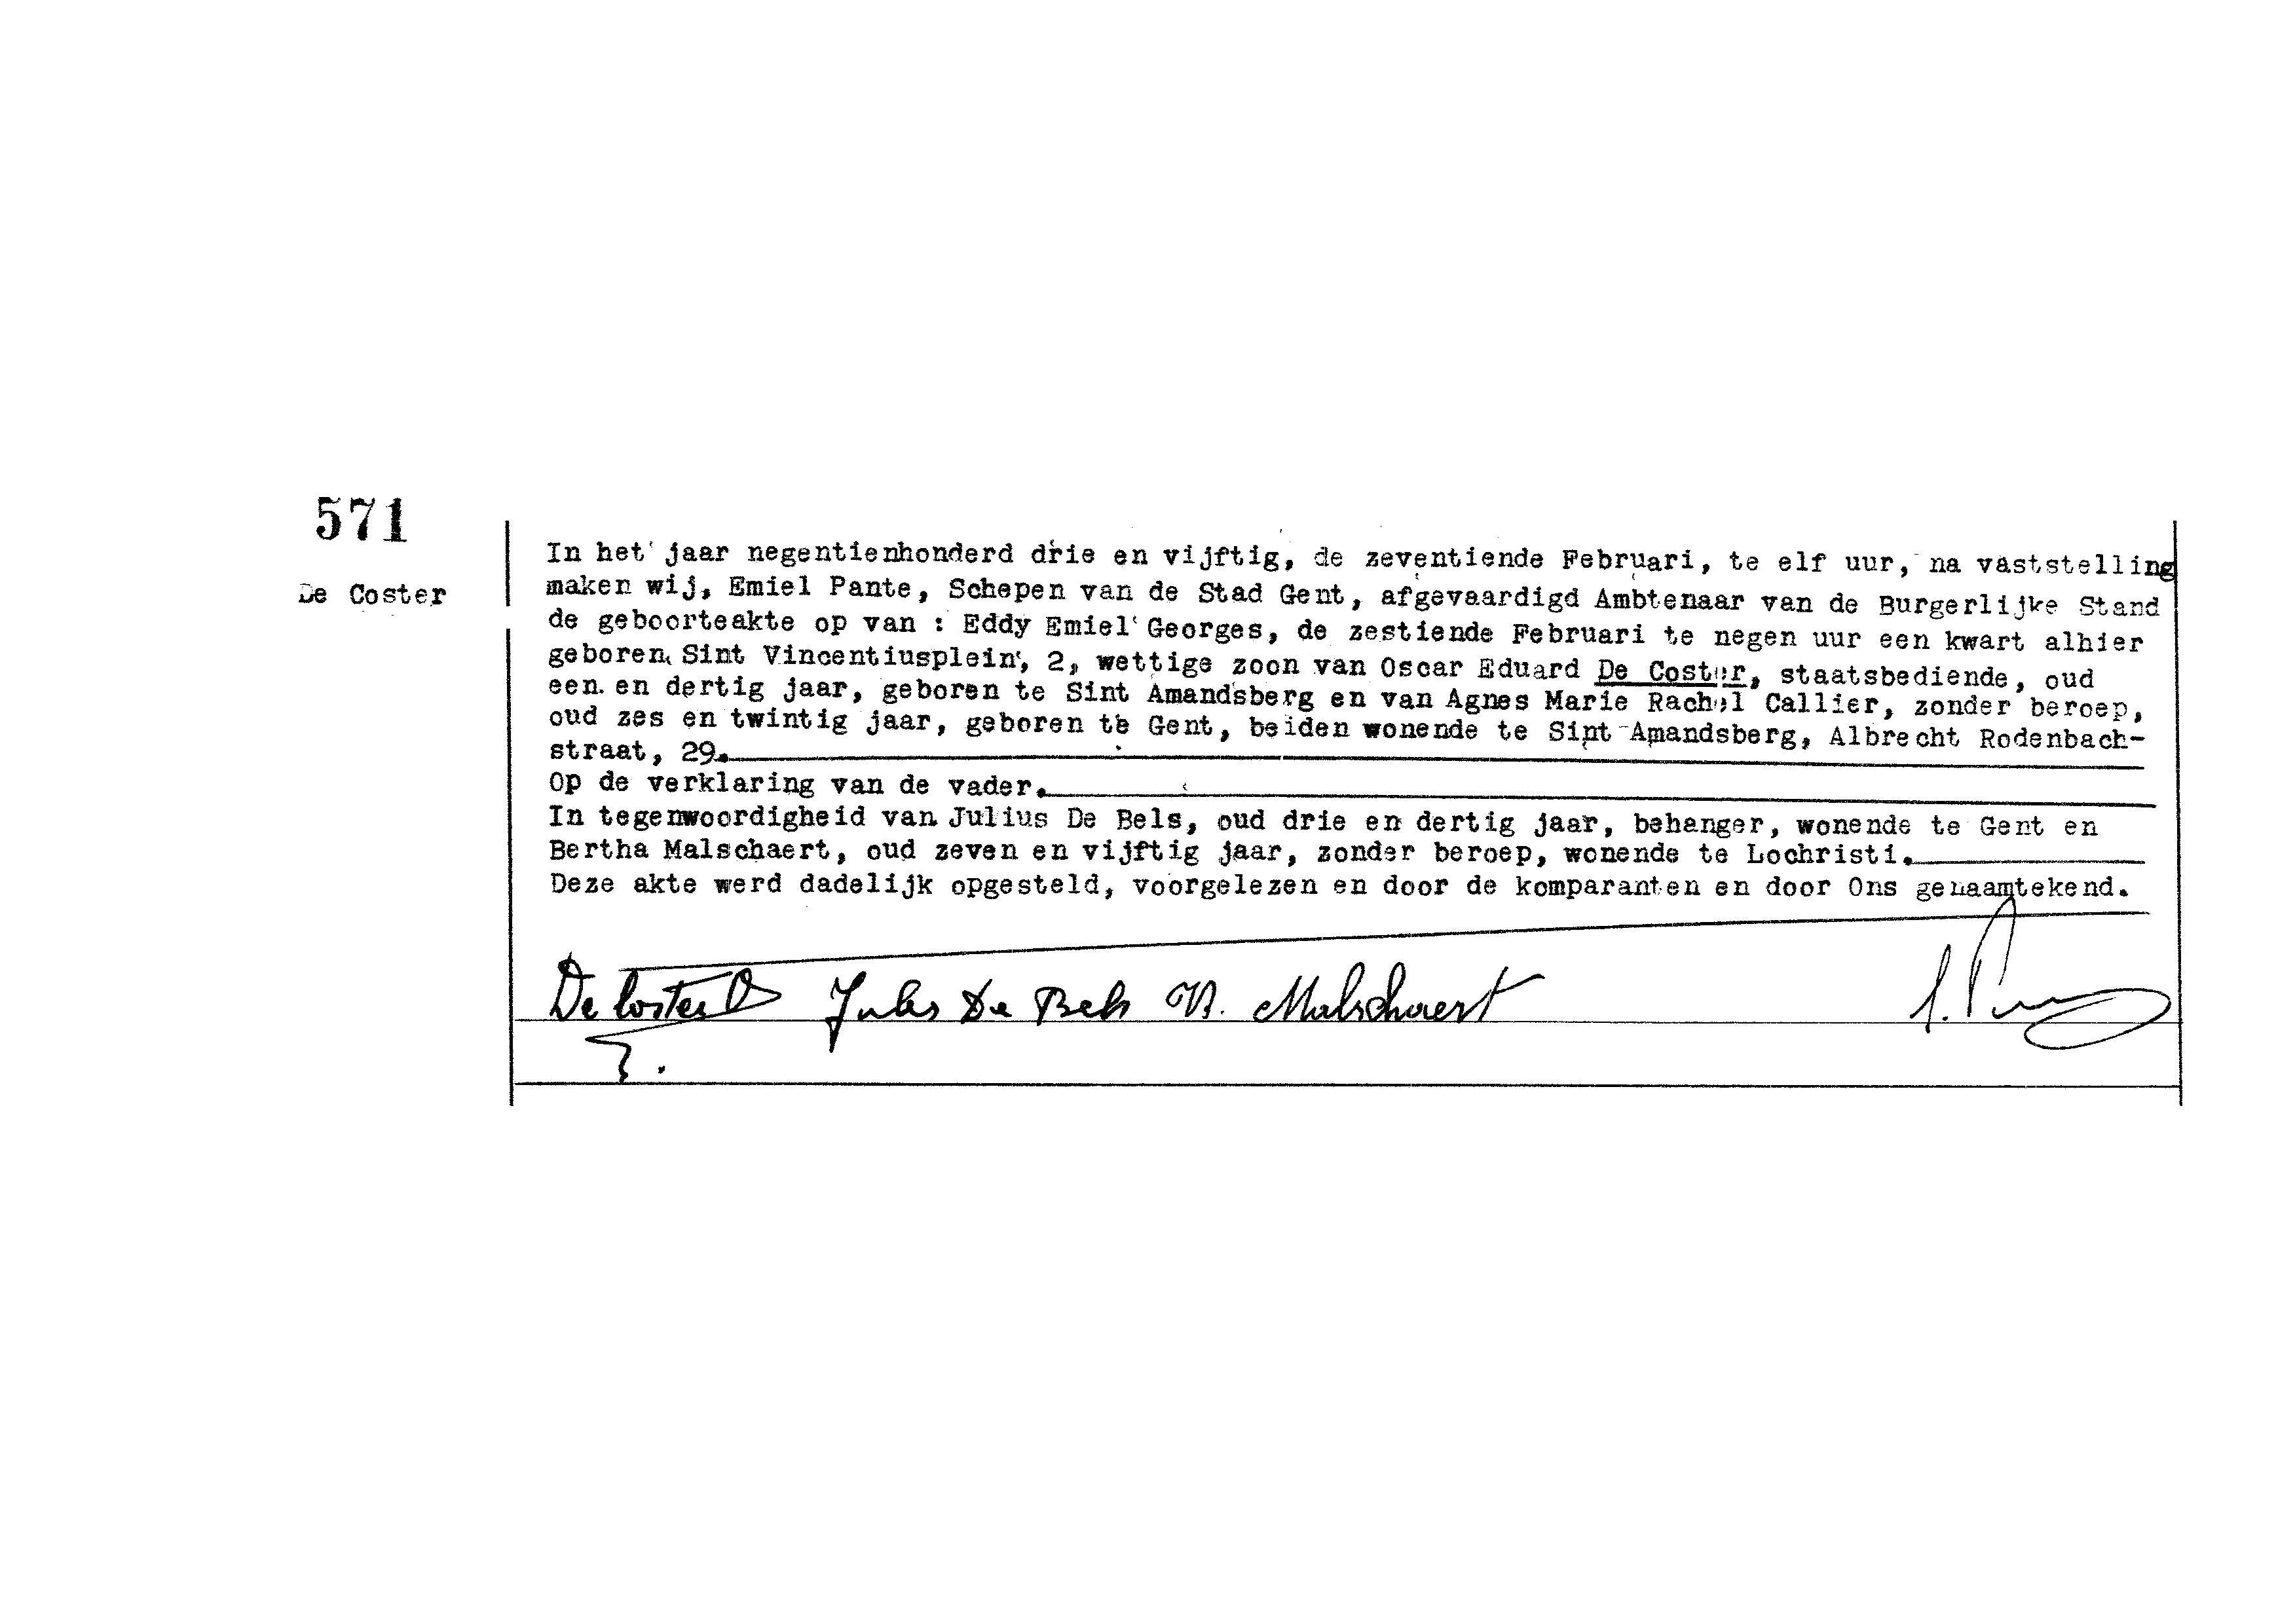 571
De Coster
In het jaar negentienhonderd drie en vijftig, de zeventiende Februari, te elf uur, na vaststelling
maken wij, Emiel Pante, Schepen van de Stad Gent, afgevaardigd Ambtenaar van de Burgerlijke Stand
de geboorteakte op van : Eddy Emiel Georges, de zestiende Februari te negen uur een kwart alhier
geboren Sint Vincentiusplein, 2, wettige zoon van Oscar Eduard De Coster, staatsbediende, oud
een en dertig jaar, geboren te Sint Amandsberg en van Agnes Marie Rachel Callier, zonder beroep,
oud zes en twintig jaar, geboren te Gent, beiden wonende te Sint Amandsberg, Albrecht Rodenbach-
straat, 29.
Op de verklaring van de vader.
In tegenwoordigheid van Julius De Bels, oud drie en dertig jaar, behanger, wonende te Gent en
Bertha Malschaert, oud zeven en vijftig jaar, zonder beroep, wonende te Lochristi.
Deze akte werd dadelijk opgesteld, voorgelezen en door de komparanten en door Ons genaamtekend.
De Coster O Jules De Bels B. Malschaert